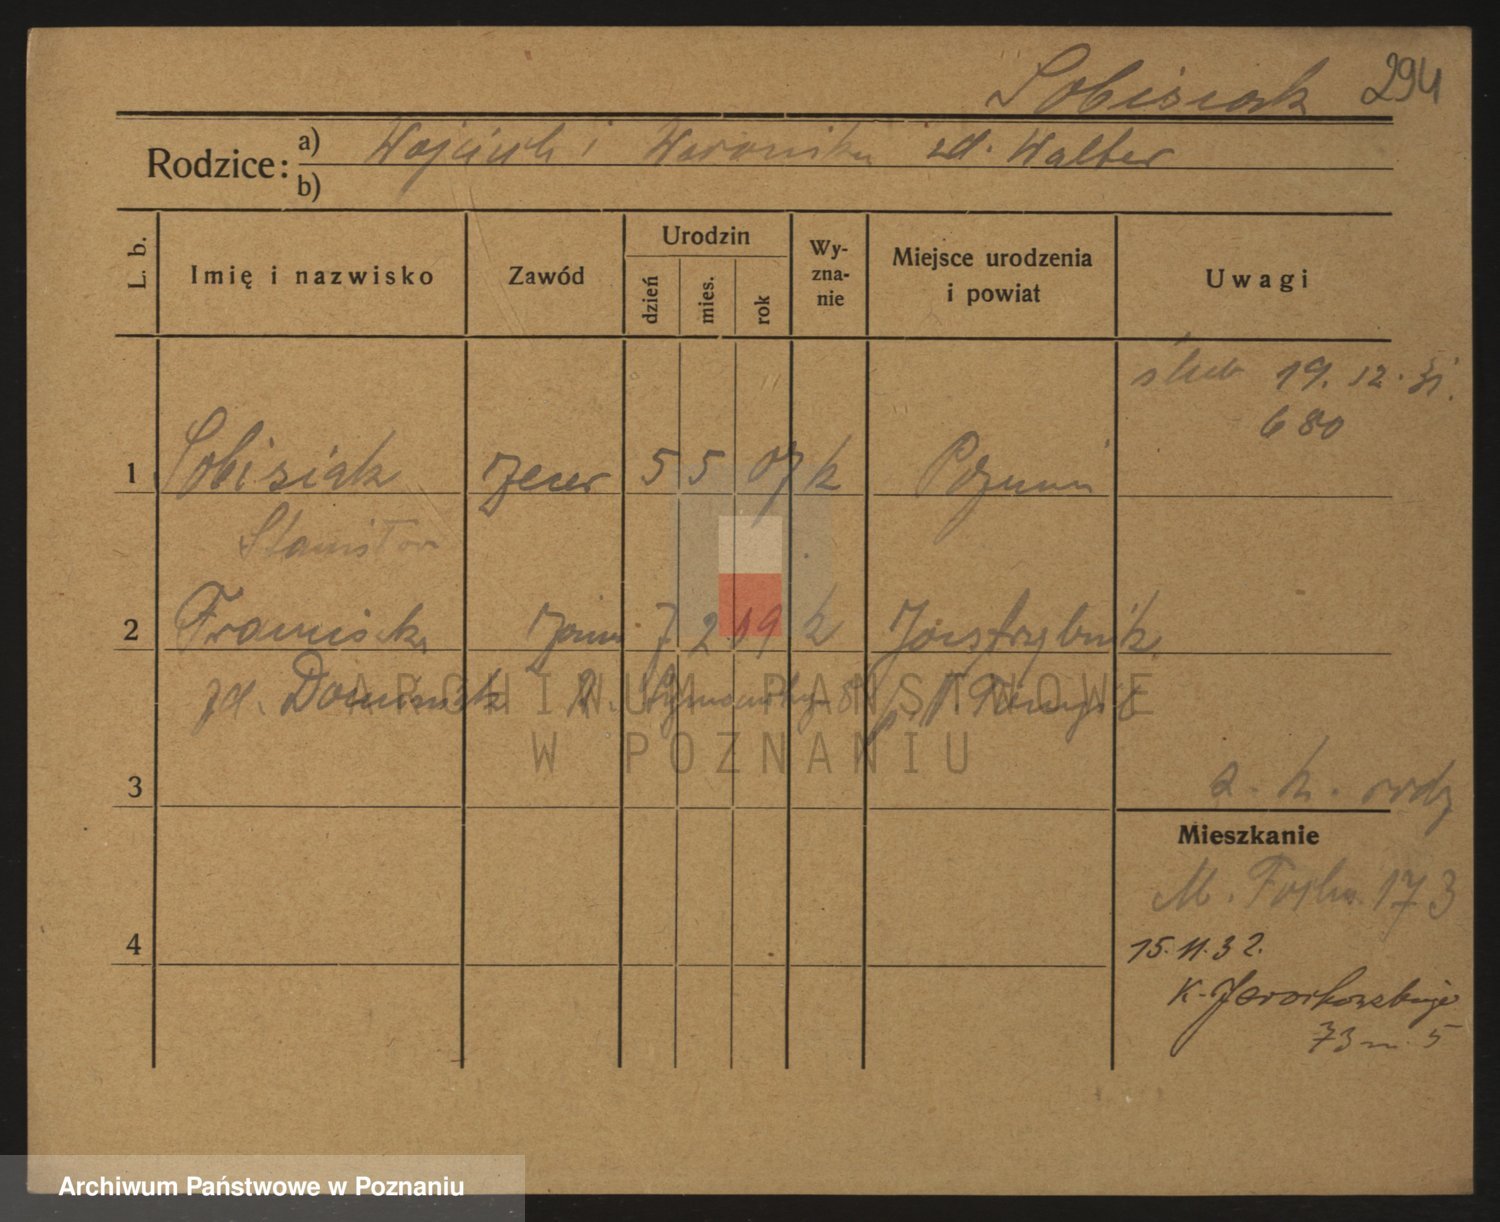 Sobisiak 294
Rodzice: a) Wojciech i Weronika zd. Walter
b)
L. b. Imię i nazwisko Zawód Urodzin dzień mies. rok Wy-zna-nie Miejsce urodzenia i powiat Uwagi
ślub 19. 12. 31.
680
1 Sobisiak zecer 5 5 07 k Poznań
Stanisław
2 Franciszka 7 2 k
zd. Dominiak
ARCHIWUM PAŃSTWOWE
W POZNANIU
3
Mieszkanie
M. Focha 173
4
15. 11. 32.
73 m. 5
Archiwum Państwowe w Poznaniu